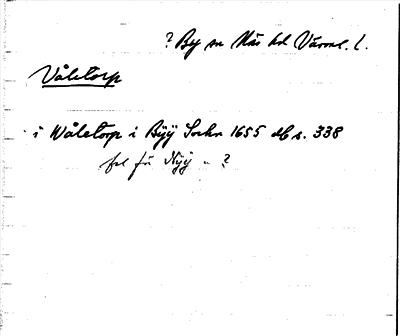 ? By sn Näs hd Värml. l.
Våletorp
i Wåletorp i Bÿÿ Sochn 1655 db s. 338
fel för Nÿÿ - ?